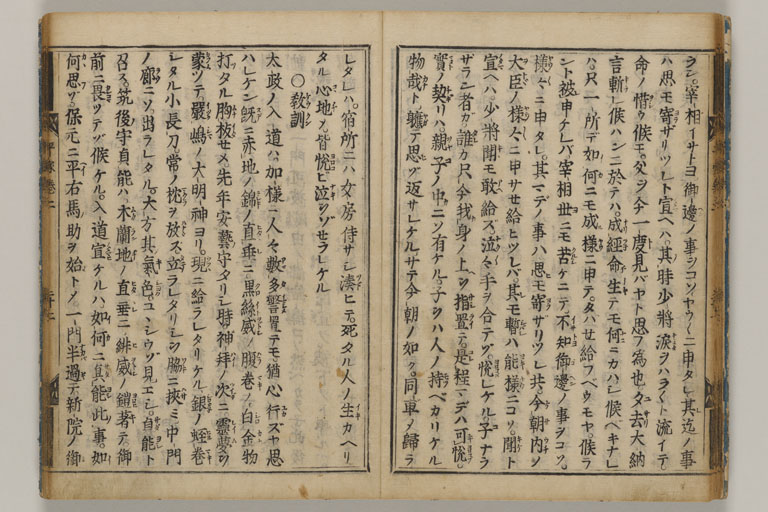 ラン宰相イサトヨ御邊ノ事ヲコソヤウ〳〵ニ申タレ其迄ノ事
ハ思モ寄サリツレト宣ヘハ其時少將淚ヲハラ〳〵ト流イテ
命ノ惜ウ候モ父ヲ今一度見バヤト思フ為也夕去大納
言斬レ候ハンニ於テハ成經命生テモ何ニカハシ候ベキナレ
ハ只一所デ如何ニモ成様ニ申テタハセ給フベウモヤ候ラ
ント被申ケレバ宰相世ニモ苦ケニテ不知御邊ノ事ヲコソ
様々ニ申タレ其マデノ事ハ思モ寄サリツレ共今朝内ノ
大臣ノ様々ニ申サセ給ヒツレバ其モ暫ハ能様ニコソ聞ト
宣ヘハ少將聞モ敢給ス泣々手ヲ合テゾ悦レケル子ナラ
ザラン者ガ誰カ只今我身ノ上ヲ指置テ是程マデハ可悦
實ノ契リハ親子ノ中ニソ有ケル子ヲハ人ノ持ベカリケル
物哉ト軈テ思ヅ返サレケルサテ今朝ノ如ク同車ソ歸ラ
レタレハ宿所ニハ女房侍サシ湊ヒテ死タル人ノ生カヘリ
タル心地シ皆悦ヒ泣ヲゾセラレケル
〇教訓
太政ノ入道ハ加様ニ人々數多警置テモ猶心行ズヤ思
ハレケン既ニ赤地ノ錦ノ直垂ニ黑絲威ノ腹巻ノ白金物
打タル胸板セメ先年安藝守タリシ時神拜ノ次ニ靈夢ヲ
蒙ツテ嚴嶋ノ大明神ヨリ現ニ給ラレタリケル銀ノ蛭巻
シタル小長刀常ノ枕ヲ放ス立ラレタリシヲ脇ニ挾ミ中門
ノ廊ニソ出ラレタル大方其氣色ユヽシウゾ見エシ自能ト
召ス筑後守貞能ハ木蘭地ノ直垂ニ緋威ノ鎧著テ御
前ニ畏ツテゾ候ケル入道宣ケルハ如何ニ貞能此事如
何思ヅ保元ニ平右馬助ヲ始トメ一門半過テ新院ノ御